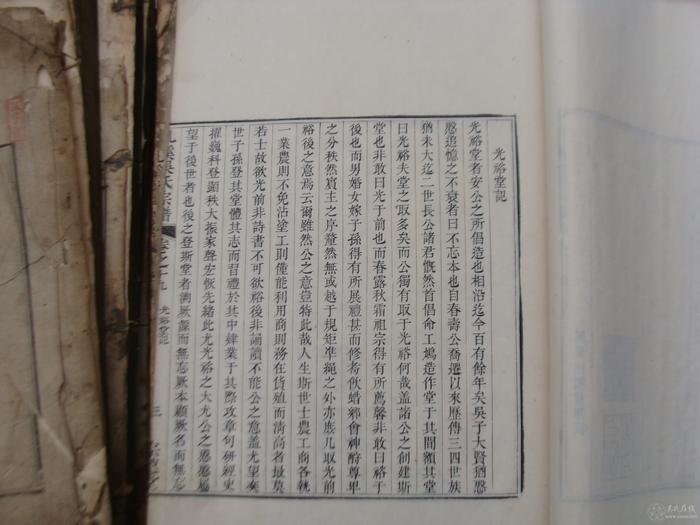 光裕堂記
光裕堂者安公之所倡造也相沿迄今百有餘年矣吳子大賢猶慇
慇追憶之不衰者曰不忘本也自春壽公喬遷以來歷傳三四世族
猶未大迄二世長公諸君慨然首倡命工鳩造作堂于其間額其堂
曰光裕夫堂之取多矣而公獨有取于光裕何哉蓋諸公之創建斯
堂也非敢曰光于前也而春露秋霜祖宗得有所薦馨非敢曰裕于
後也而男婚女嫁子孫得有所展禮甚而修耇飲蜡鄉會神酧尊卑
之分秩然賓主之序釐然無或越于規矩準繩之外亦庶几取光前
裕後之意焉云爾雖然公之意豈特此哉人生斯世士農工商各執
一業農則不免沾塗工則僅能利用商則務在貨殖而清高者最莫
若士故欲光前非詩書不可欲裕後非誦讀不能公之意蓋尤望奕
世子孫登其堂體其志而習禮於其中肄業于其際攻章句研經史
擢巍科登顯秩大振家聲宏恢先緒此尤光裕之大尤公之慇慇屬
望于後世者也後之登斯堂者溯厥源而無忘厥本顧厥名而無忘
吳氏宗譜
卷之十九
光裕堂記
三